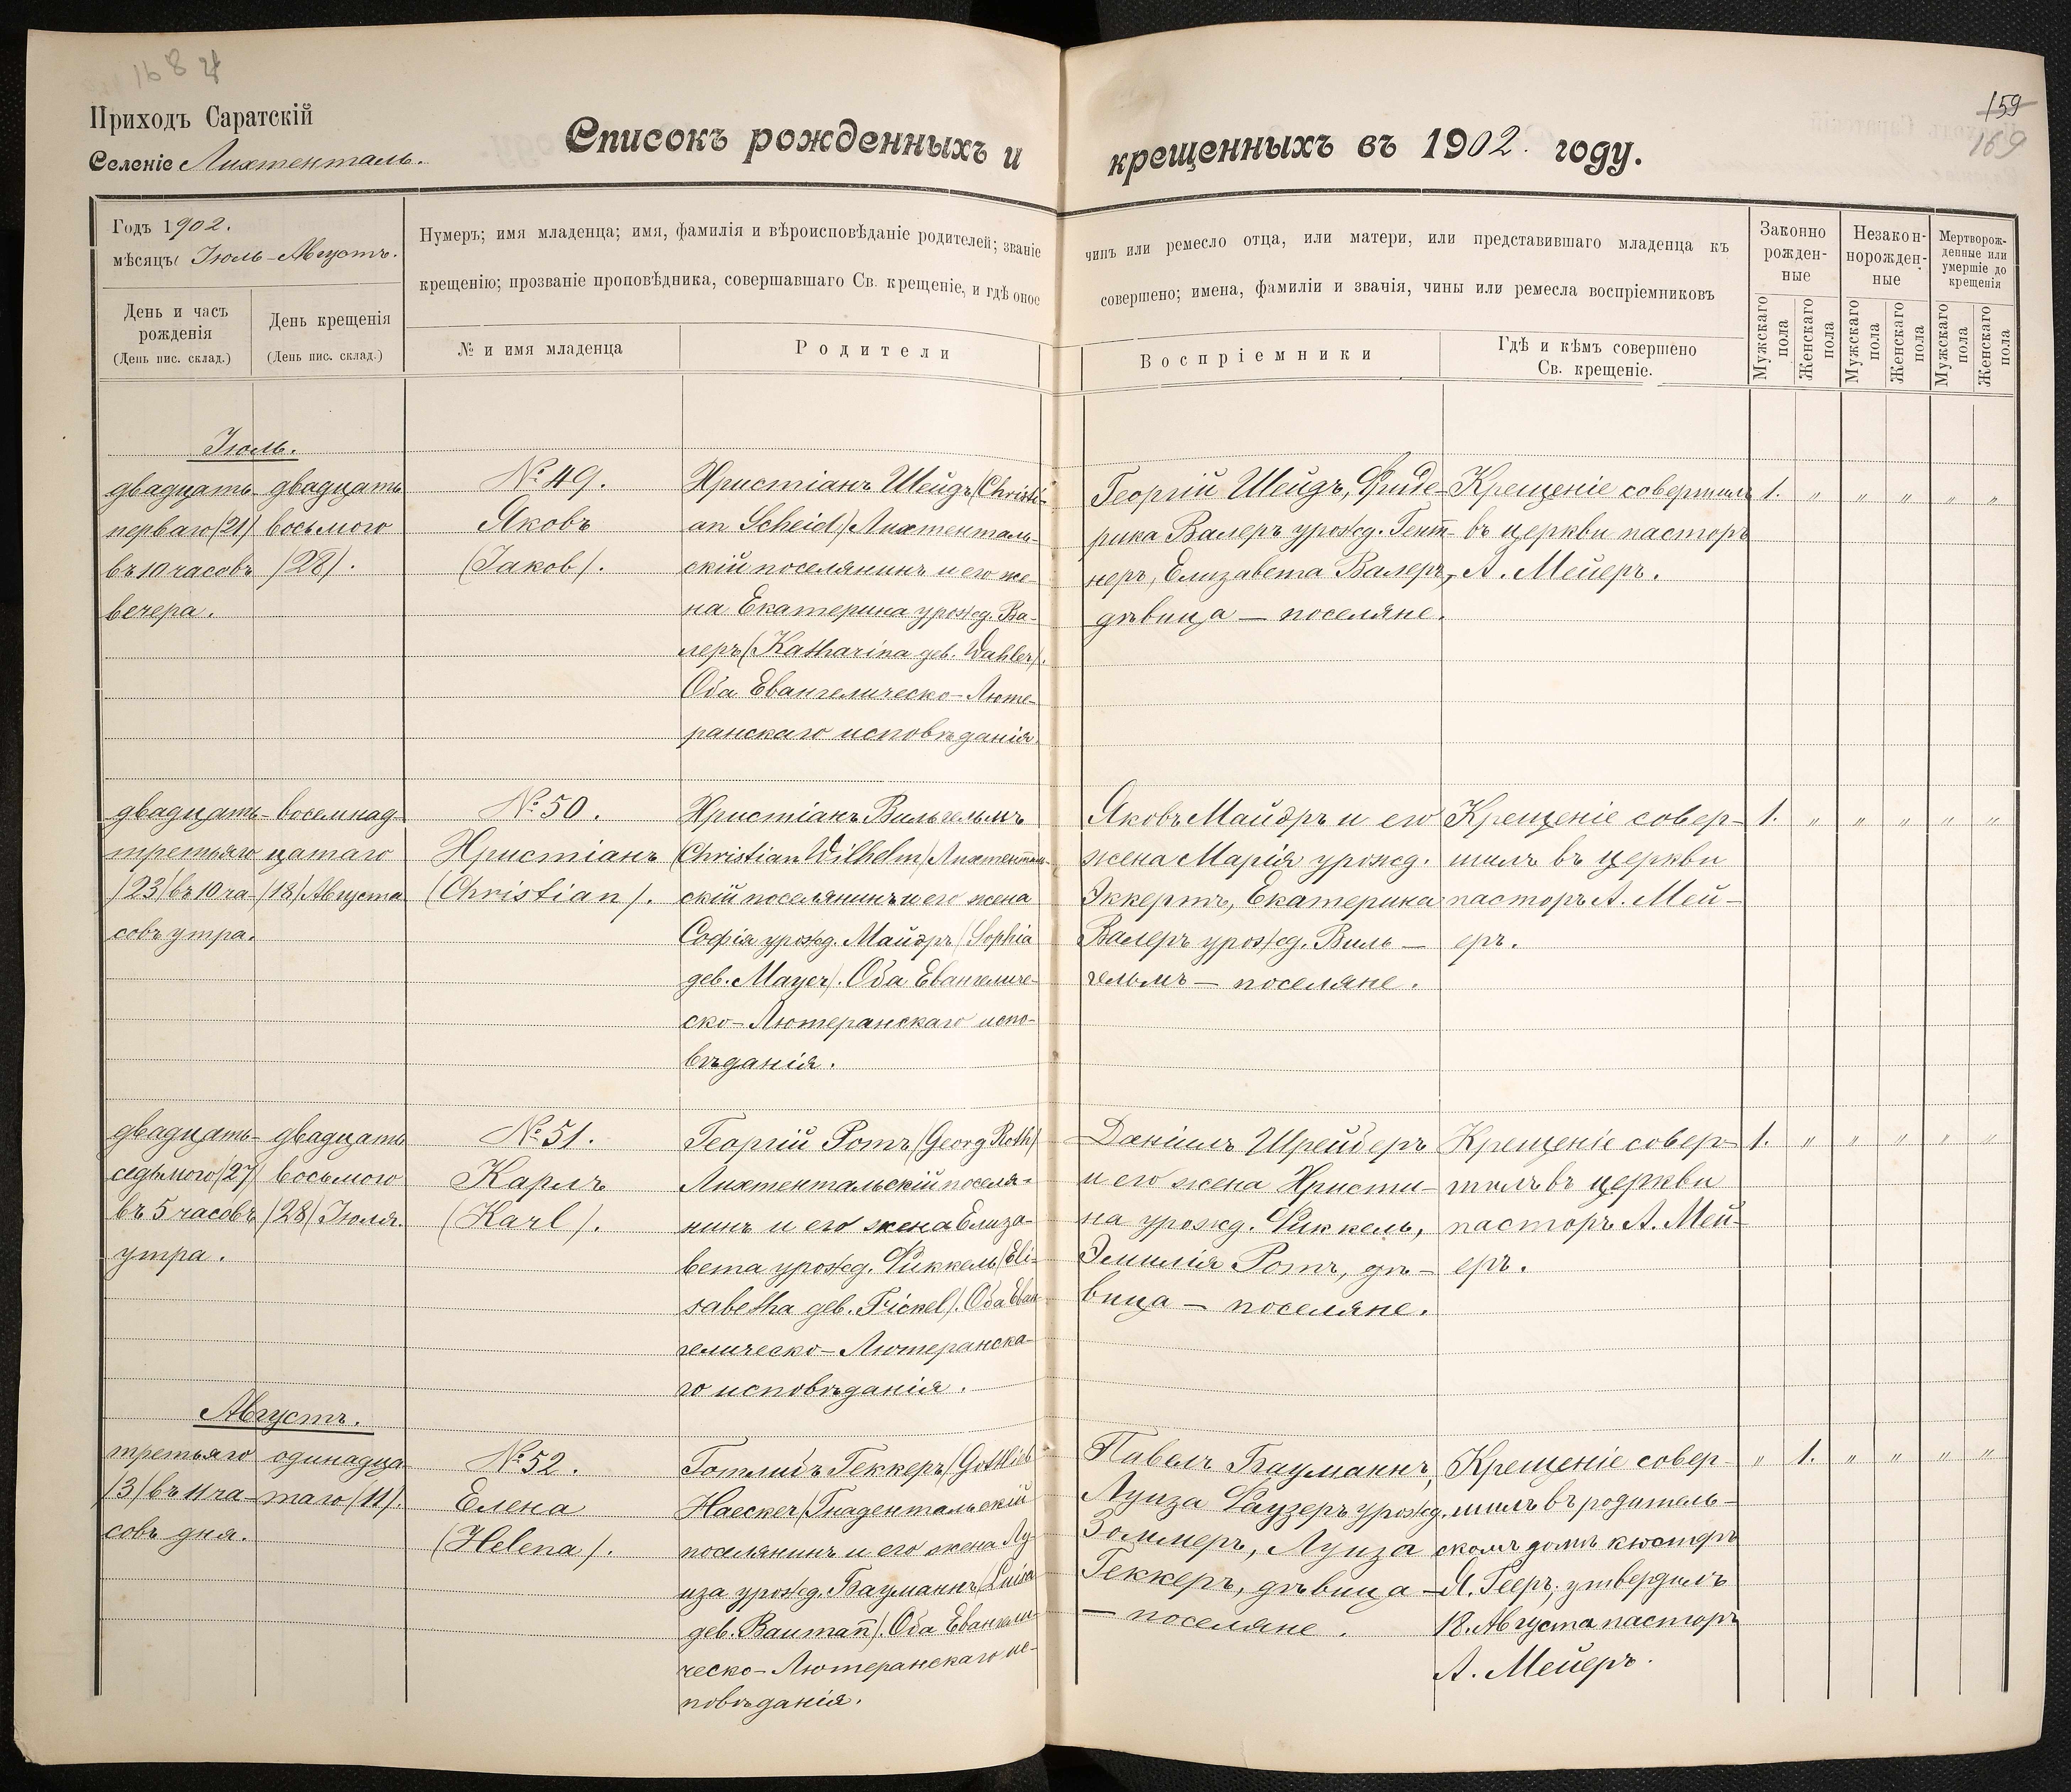 168 
Приходъ Саратскій
Селеніе Лихтенталь.
Списокъ рожденныхъ и
крещенныхъ въ 1902. году.
159
169
Годъ 1902.
мѣсяцъ Іюль-Августъ.
День и часъ рожденія
(День пис. склад.)
День крещенія
(День пис. склад.)
Нумеръ; имя младенца; имя, фамилія и вѣроисповѣданіе родителей; званіе
крещенію; прозваніе проповѣдника, совершавшаго Св. крещеніе, и гдѣ оное
№ и имя младенца
Родители
чинъ или ремесло отца, или матери, или представившаго младенца къ
совершено; имена, фамиліи и званія, чины или ремесла воспріемниковъ
Воспріемники
Гдѣ и кѣмъ совершено
Св. крещеніе.
Законно
рожден-
ные
Незакон-
норожден-
ные
Мертворож-
денные или
умершіе до
крещенія
Мужскаго пола
Женскаго пола
Мужскаго пола
Женскаго пола
Мужскаго пола
Женскаго пола
Іюль.
двадцать-
перваго (21)
въ 10 часовъ
вечера.
двадцать
восьмого
(28).
№ 49.
Яковъ
(Jakob).
Христіанъ Шейдъ (Christi-
an Scheid) Лихтенталь-
скій поселянинъ и его же-
на Екатерина урожд. Ва-
леръ (Katharina geb. Wahler).
Оба Евангелическо-Люте-
ранскаго исповѣданія.
Георгій Шейдъ, Фриде-
рика Валеръ урожд. Гент-
неръ, Елизавета Валеръ,
дѣвица — поселяне.
Крещеніе совершилъ
въ церкви пасторъ
А. Мейеръ.
1. " " " " "
двадцать-
третьяго
(23) въ 10 ча-
совъ утра.
восемнад-
цатаго
(18) Августа
№ 50.
Христіанъ
(Christian).
Христіанъ Вильгельмъ
(Christian Wilhelm) Лихтенталь-
скій поселянинъ и его жена
Софія урожд. Майэръ (Sophia
geb. Mayer). Оба Евангеличе-
ско-Лютеранскаго испо-
вѣданія.
Яковъ Майэръ и его
жена Марія урожд.
Эккертъ, Екатерина
Валеръ урожд. Виль-
гельмъ — поселяне.
Крещеніе совер-
шилъ въ церкви
пасторъ А. Мей-
еръ.
1. " " " " "
двадцать-
седьмого (27)
въ 5 часовъ
утра.
двадцать
восьмого
(28) Іюля.
№ 51.
Карлъ
(Karl).
Георгій Ротъ (Georg Roth)
Лихтентальскій поселя-
нинъ и его жена Елиза-
вета урожд. Фиккель (Eli-
sabetha geb. Fickel). Оба Еван-
гелическо-Лютеранска-
го исповѣданія.
Даніилъ Шрейберъ
и его жена Христи-
на урожд. Фиккель,
Эмилія Ротъ, дѣ-
вица — поселяне.
Крещеніе совер-
шилъ въ церкви
пасторъ А. Мей-
еръ.
1. " " " " "
Августъ.
третьяго
(3) въ 11 ча-
совъ дня.
одинадца-
таго (11).
№ 52.
Елена
(Helena).
Готлибъ Геккеръ (Gottlieb
Haecker) Гнадентальскій
поселянинъ и его жена Лу-
иза урожд. Бауманнъ (Luisa
geb. Baumañ). Оба Евангели-
ческо-Лютеранскаго ис-
повѣданія.
Павелъ Бауманнъ,
Луиза Фаузеръ урожд.
Золлмеръ, Луиза
Геккеръ, дѣвица —
— поселяне.
Крещеніе совер-
шилъ въ родитель-
скомъ домѣ кюстеръ
Я. Гееръ; утвердилъ
18. Августа пасторъ
А. Мейеръ.
" 1. " " " "